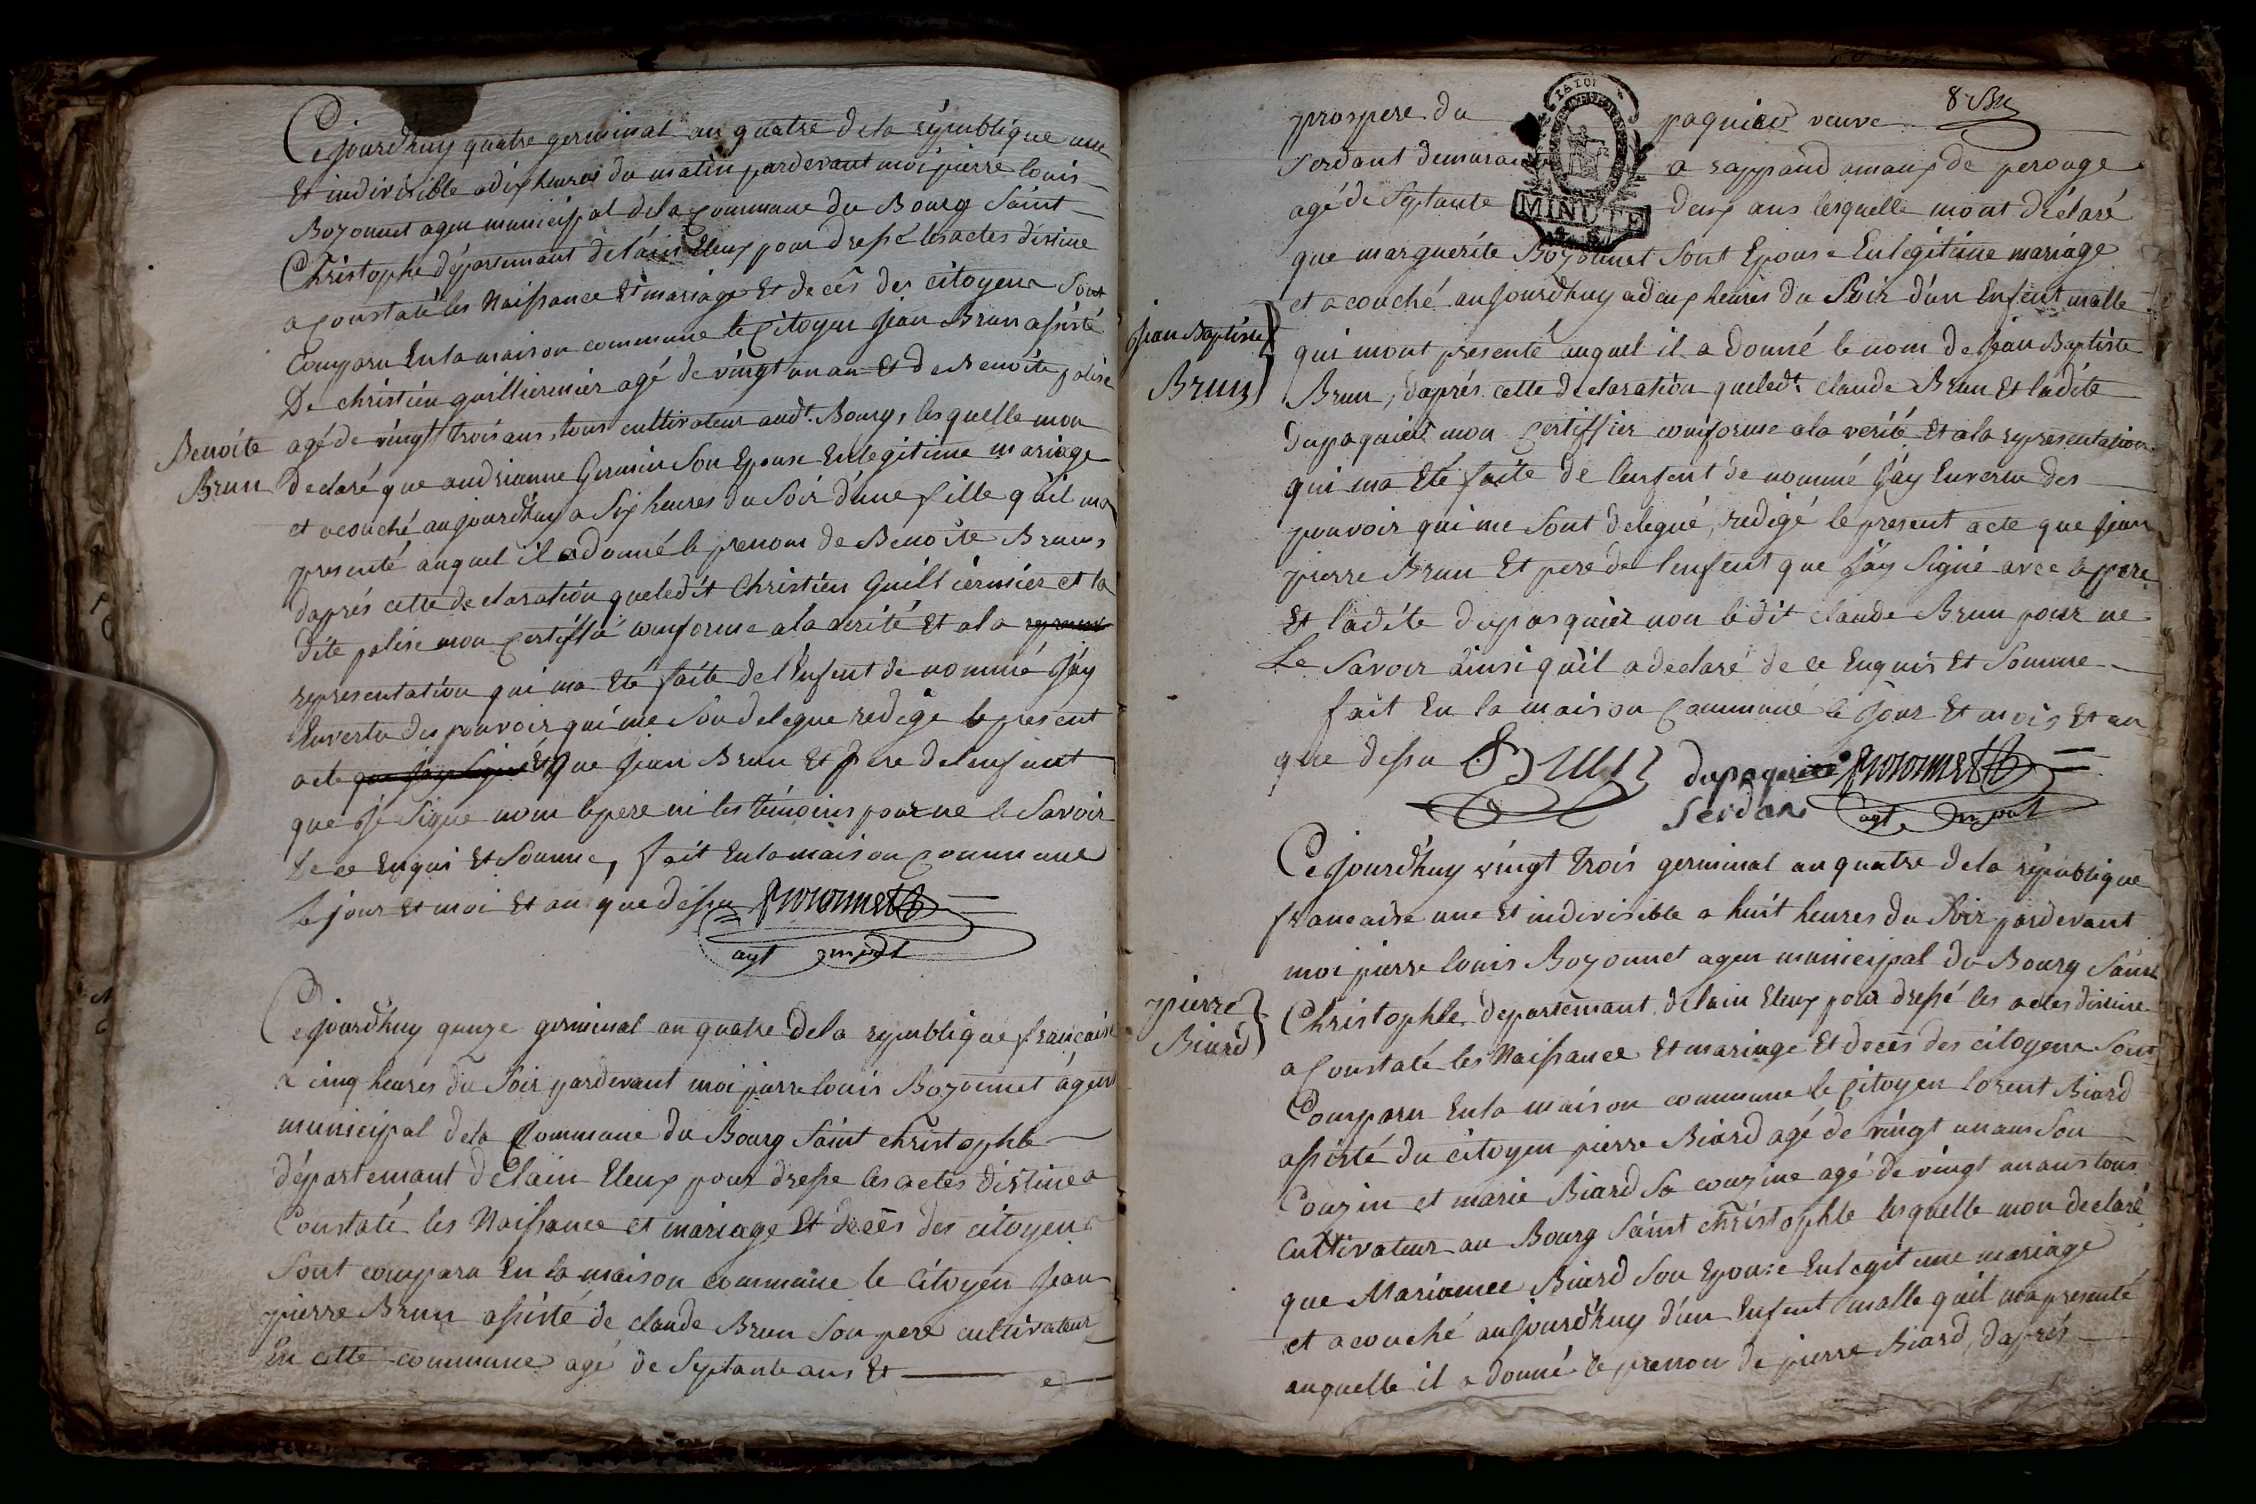 Ce jourdhuy quatre germinal an quatre dela république une
Et indivisible a dix heures du matin pardevant moi pierre louis
Bozonnet agen municipal dela Commune du Bourg Saint
Christophe département delain Eleux pour dressé les actes distine
a Constaté les Naissance Et mariage Et decês des citoyens Sont
Comparu En la maison commune le Citoyen Jean Brun assisté
De christien guillermier agé de vingt un an Et de Benoite polise
Benoite
Brun
agé de vingt trois ans, tous cultivateur audt. Bourg, lesquelle mon
declaré que andrianne Germin Son Epouse En legitime mariage
et acouché aujourdhuy a Six heures du Soir dune fille quil ma
presenté auquel il a donné le prenom de Benoite Brun,
daprés cette declaration queledit Christien Guilliermier et la
dite polise mon Certiffié conforme a la verité Et a la
representation qui ma Eté faite de l'Enfent de nommé J'ay
Envertu des pouvoir qui me Son delegue redigé le present
acte que Jean Brun Et Pere de lenfant
que Je Signe nom le pere ni les témoins pour ne le Savoir
de ce Enqui Et Somme, fait En la maison Commune
le jour Et moi Et an que dessu Bozonnet
agt municl
Ce jourdhuy quinze germinal an quatre dela republique française
a cinq heures du Soir pardevant moi pierre louis Bozonnet agent
municipal dela Commune du Bourg Saint christophle
département d Elain Eleux pour dresse les actes distine a
Constaté les Naissance et mariage Et decês des citoyens
Sont comparu En la maison commune le Citoyen Jean
pierre Brun assisté de claude Brun Son pere cultivateur
En cette commune agé de Septante ans Et
8 Bn
prospere du paquier veuve
Serdant demurant a rappand amaux de perouge
LA LOI
MINUTE
agé de Septante deux ans lesquelle mont déclaré
que marguerite Bozonnet Sont Epouse En legitime mariage
et acouché aujourdhuy a deux heures du Soir d'un Enfent malle
Jean Baptiste
Brun
qui mont presenté auquel il a donné le nom de Jean Baptiste
Brun, daprés cette declaration queledt. claude Brun Et ladite
dupaquier mon Certiffier conforme a la verité Et a la representation
qui ma Eté faite de lenfent de nommé J'ay Envertu des
pouvoir qui me Sont delegué, redigé le present acte que Jean
pierre Brun Et pere de lenfent que J'ay Signé avec le pere
Et ladite dupasquier non le dit claude Brun pour ne
Le Savoir ainsi quil a declaré de ce Enquis Et Somme
fait En la maison Commune le Jour Et mois Et an
que dessu Brun dupaquier Bozonnet
Serdan agt municl
Ce jourdhuy vingt trois germinal an quatre dela république
francaise une Et indivisible a huit heures du Soir pardevant
moi pierre louis Bozonnet agen municipal du Bourg Saint
pierre
Biard
Christophle departêmant delain Eleux pour dressé les actes distine
a Constaté les Naissance Et mariage Et decês des citoyens Sont
Comparu En la maison commune le Citoyen lorent Biard
assisté du citoyen pierre Biard agé de vingt un ans Son
Couzin et marie Biard Sa couzine agé de vingt un ans tous
Cultivateur au Bourg Saint christophle lesquelle mon declaré
que Marianne Biard Son Epouse En legitime mariage
et acouché aujourdhuy d'un Enfent malle quil ma presenté
auquelle il a donné le prenon de pierre Biard, daprés